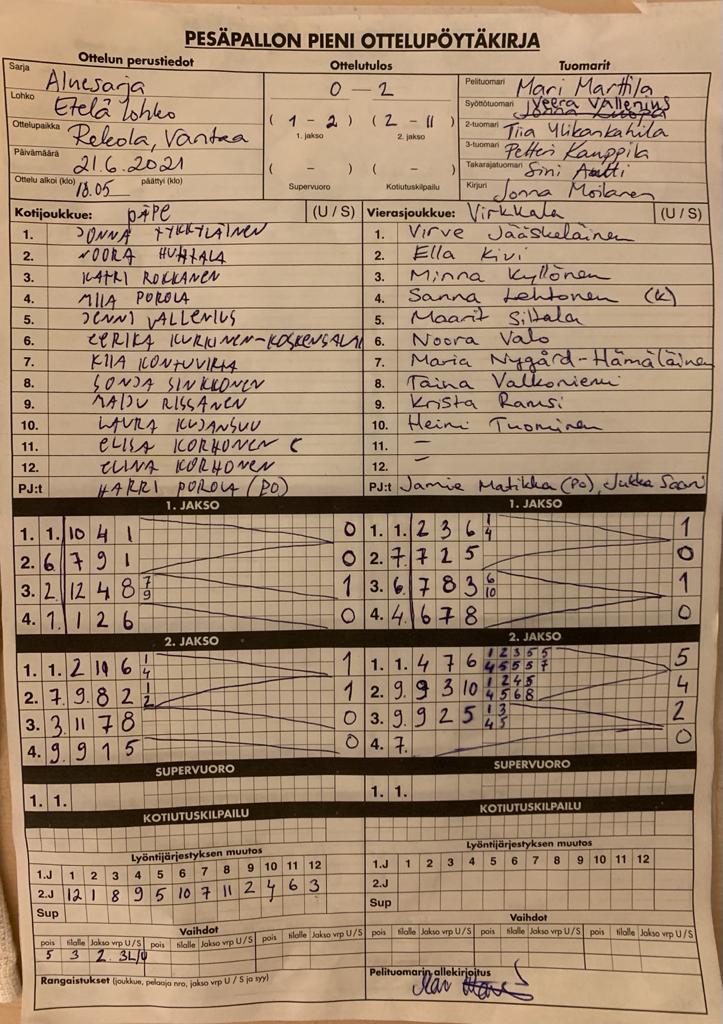 PESÄPALLON PIENI OTTELUPÖYTÄKIRJA
Ottelun perustiedot
Sarja Aluesarja
Lohko Etelä lohko
Ottelupaikka Rekola, Vantaa
Päivämäärä 21.6.2021
Ottelu alkoi (klo) 18.05 päättyi (klo)
Ottelutulos
0 - 2
(1 - 2) (2 - 11)
1. jakso 2. jakso
( - ) ( - )
Supervuoro Kotiutuskilpailu
Tuomarit
Pelituomari Mari Marttila
Syöttötuomari Veera Vallenius
2-tuomari Tiia Ylikankahila
3-tuomari Petteri Kauppila
Takarajatuomari Sini Autti
Kirjuri Jonna Moilanen
Kotijoukkue: PÄPE (U / S)
1. JONNA TYKKYLÄINEN
2. NOORA HUHTALA
3. KATRI ROKKANEN
4. MIIA POROLA
5. JENNI VALLENIUS
6. EERIKA KURKINEN-KOSKENSALMI
7. KIIA KONTUVIRTA
8. SONJA SINKKONEN
9. MAIJU RISSANEN
10. LAURA KUJANSUU
11. ELISA KORHONEN C
12. ELINA KORHONEN
PJ:t HARRI POROLA (PO)
Vierasjoukkue: Virkkala (U / S)
1. Virve Jääskeläinen
2. Ella Kivi
3. Minna Kyllönen
4. Sanna Lehtonen (K)
5. Maarit Siltala
6. Noora Valo
7. Maria Nygård-Hämäläinen
8. Taina Valkoniemi
9. Krista Ramsi
10. Heini Tuominen
11. –
12. –
PJ:t Jamie Matikka (PO), Jukka Saari
1. JAKSO
1. 1. 10 4 1 0
2. 6 7 9 1 0
3. 2 12 4 8 7 9 1
4. 1. 1 2 6 0
1. JAKSO
1. 1. 2 3 6 1 4 1
2. 7. 7 2 5 0
3. 6. 7 8 3 6 10 1
4. 4. 6 7 8 0
2. JAKSO
1. 1. 2 10 6 1 4 1
2. 7. 9. 8 2 1 2 1
3. 3. 11 7 8 0
4. 9. 9 1 5 0
2. JAKSO
1. 1. 4 7 6 1 2 3 5 5 4 5 5 5 7 5
2. 9. 9 3 10 1 2 4 5 4 5 6 8 4
3. 9. 9 2 5 1 3 4 5 2
4. 7. 0
SUPERVUORO
1. 1.
SUPERVUORO
1. 1.
KOTIUTUSKILPAILU
KOTIUTUSKILPAILU
Lyöntijärjestyksen muutos
1.J 1 2 3 4 5 6 7 8 9 10 11 12
2.J 12 1 8 9 5 10 7 11 2 4 6 3
Sup
Lyöntijärjestyksen muutos
1.J 1 2 3 4 5 6 7 8 9 10 11 12
2.J
Sup
Vaihdot
pois tilalle Jakso vrp U / S pois tilalle Jakso vrp U / S pois tilalle Jakso vrp U / S
5 3 2. 3L/U
Vaihdot
pois tilalle Jakso vrp U / S pois tilalle Jakso vrp U / S pois tilalle Jakso vrp U / S
Rangaistukset (joukkue, pelaaja nro, jakso vrp U / S ja syy)
Pelituomarin allekirjoitus